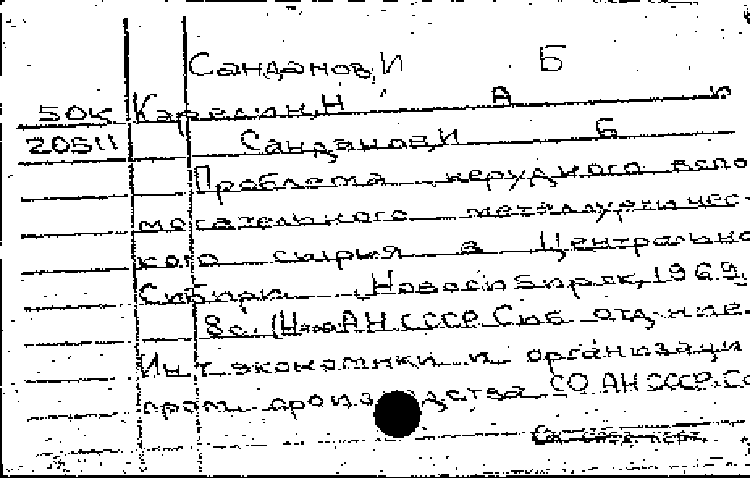 Санданов, И Б
50к Карелин, Н А и
20511 Санданов, И Б
Проблема нерудного вспо
могательного металлургичес-
кого сырья в Центрально
Сибири. Новосибирск, 1969.
8с. (АН СССР. Сиб. отд-ние.
Ин-т экономики и организаци
пром. производства СО АН СССР.